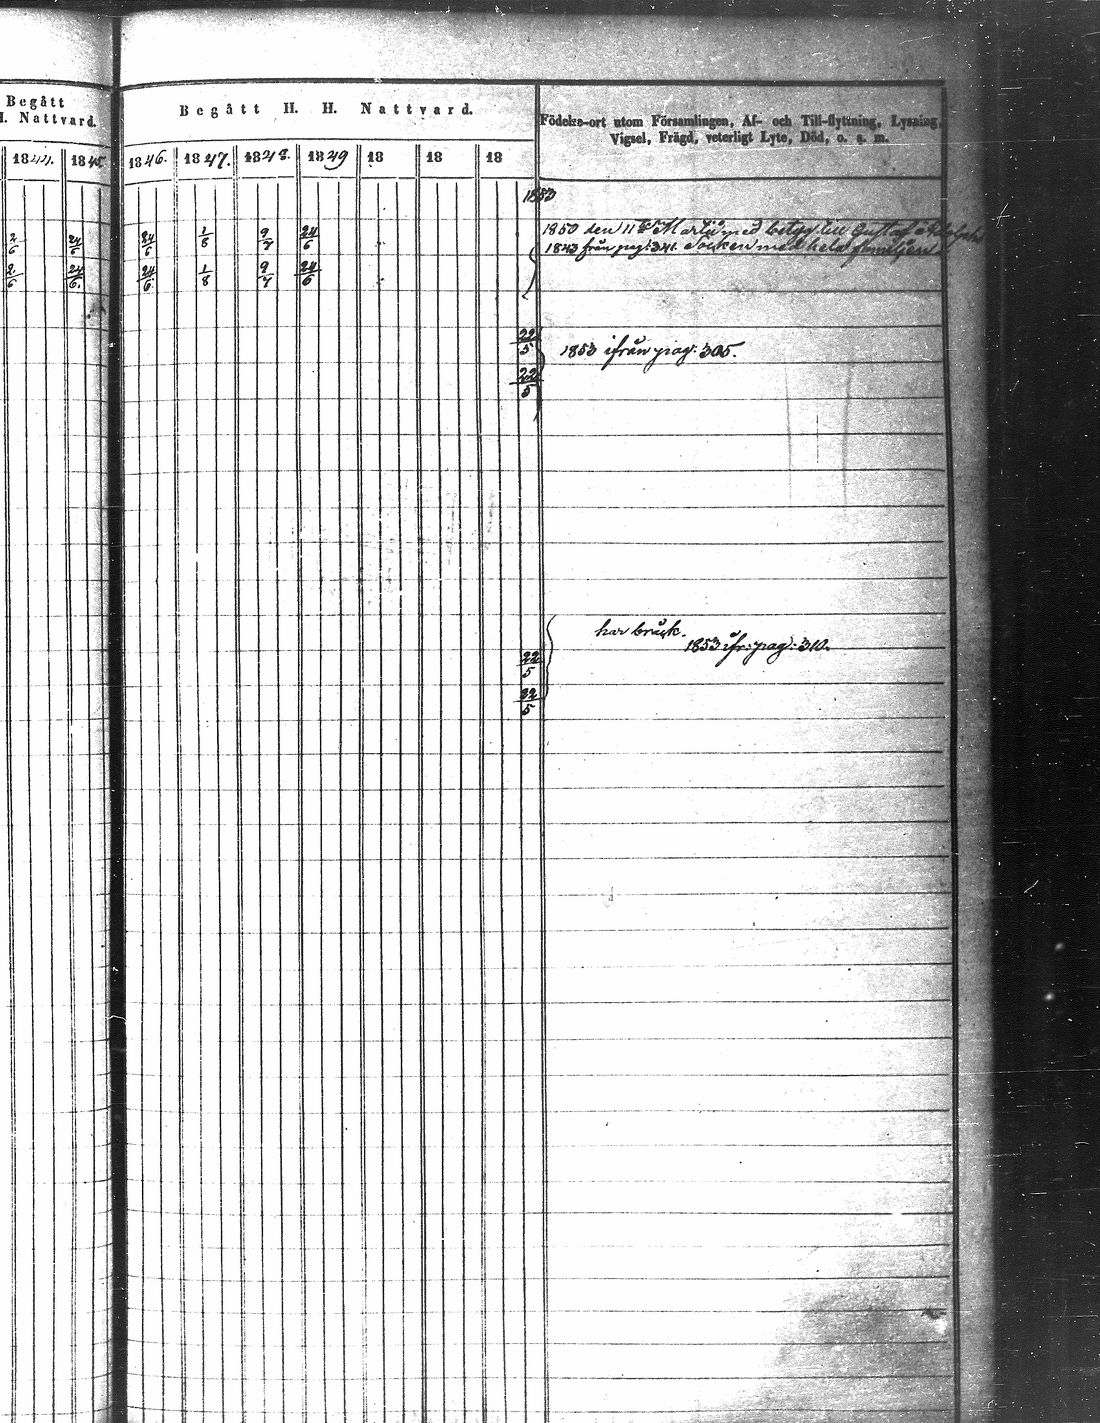 Begått
H. Nattvard.
Begått H. H. Nattvard.
Födelse-ort utom Församlingen, Af- och Till-flyttning, Lysning,
Vigsel, Frägd, veterligt Lyte, Död, o. s. m.
1844. 1845. 1846. 1847. 1848. 1849 18 18 18
1853
1850 den 11 Martii med betyg till Gustaf Adolfs
2/6 24/6 24/6 1/8 9/7 24/6
1843 från pag: 341. Socken med hela familjen
2/6 24/6. 24/6. 1/8 9/7 24/6
22/5
1853 ifrån pag: 305.
22/5
har bråck.
1853 ifr: pag: 310.
22/5
22/5